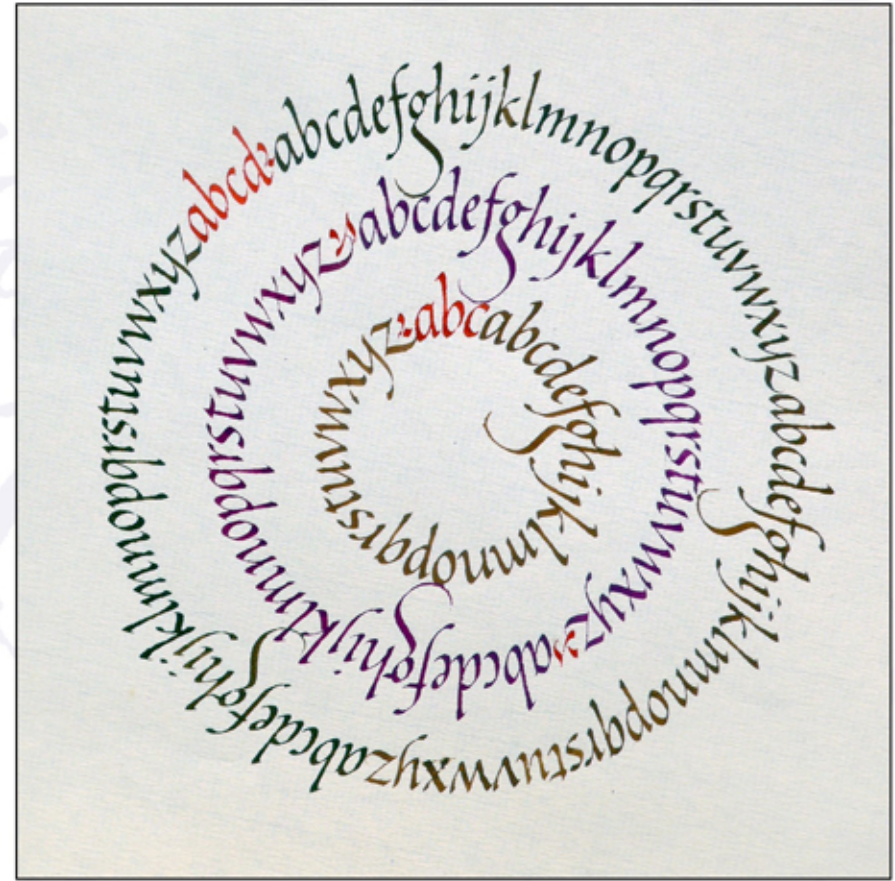 abcdefghijklmnopqrstuvwxyzabcdefghijklmnopqrstuvwxyzabcdefghijklmnopqrstuvwxyzabcd
abcdefghijklmnopqrstuvwxyz abcdefghijklmnopqrstuvwxyz
abcabcdefghijklmnopqrstuvwxyz